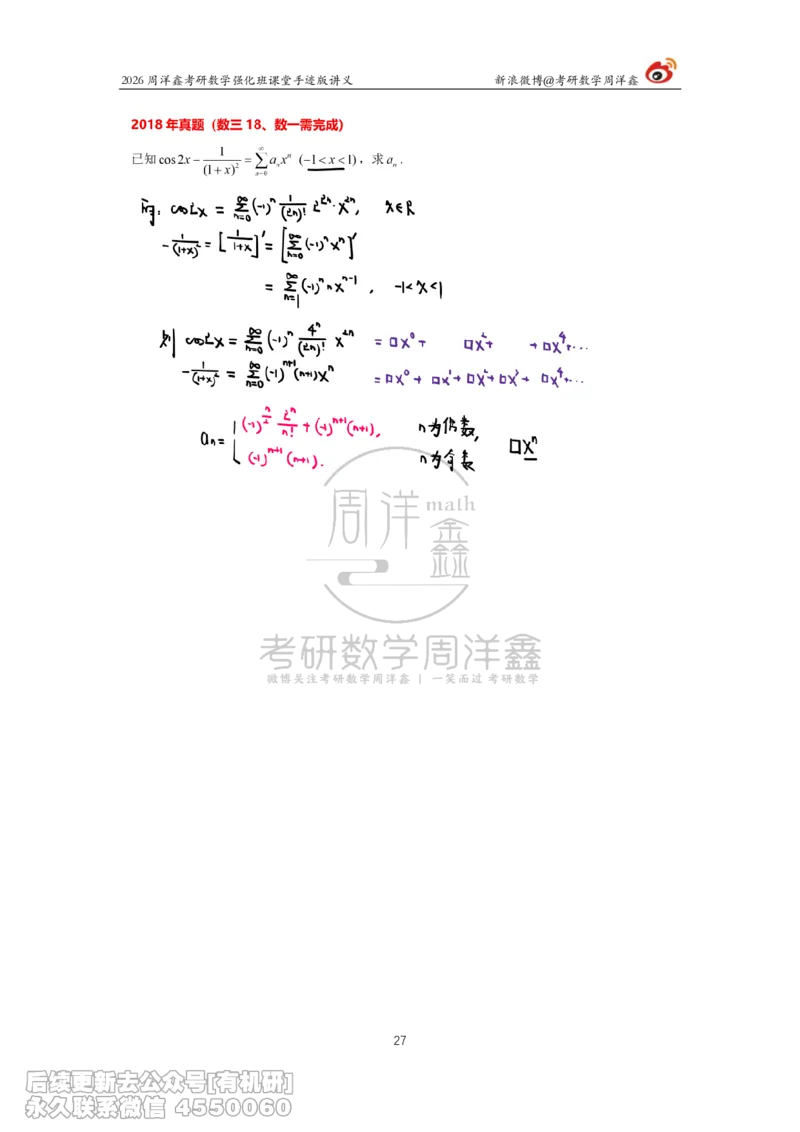 2026 周洋鑫考研数学强化班课堂手迹版讲义 新浪微博@考研数学周洋鑫
2018 年真题（数三 18、数一需完成）
已知 cos2x − 1/(1+x)² = ∑_{n=0}^{∞} aₙxⁿ (−1<x<1)，求 aₙ .
cos2x = ∑_{n=0}^{∞} (-1)ⁿ 1/(2n)! 2²ⁿ·x²ⁿ, x∈R
-1/(1+x)² = [1/(1+x)]' = [∑_{n=0}^{∞} (-1)ⁿxⁿ]'
= ∑_{n=1}^{∞} (-1)ⁿ n xⁿ⁻¹ , -1<x<1
则 cos2x = ∑_{n=0}^{∞} (-1)ⁿ 4ⁿ/(2n)! x²ⁿ = □x⁰+ □x²+ +□x⁴+...
-1/(1+x)² = ∑_{n=0}^{∞} (-1)ⁿ⁺¹(n+1)xⁿ = □x⁰+ □x¹+□x²+□x³+ □x⁴+...
aₙ = { (-1)^{n/2} 2ⁿ/n! + (-1)ⁿ⁺¹(n+1), n为偶数,
(-1)ⁿ⁺¹(n+1). n为奇数 □xⁿ
周洋鑫 math
考研数学周洋鑫
微博关注考研数学周洋鑫 | 一笑而过 考研数学
27
后续更新去公众号[有机研]
永久联系微信 4550060